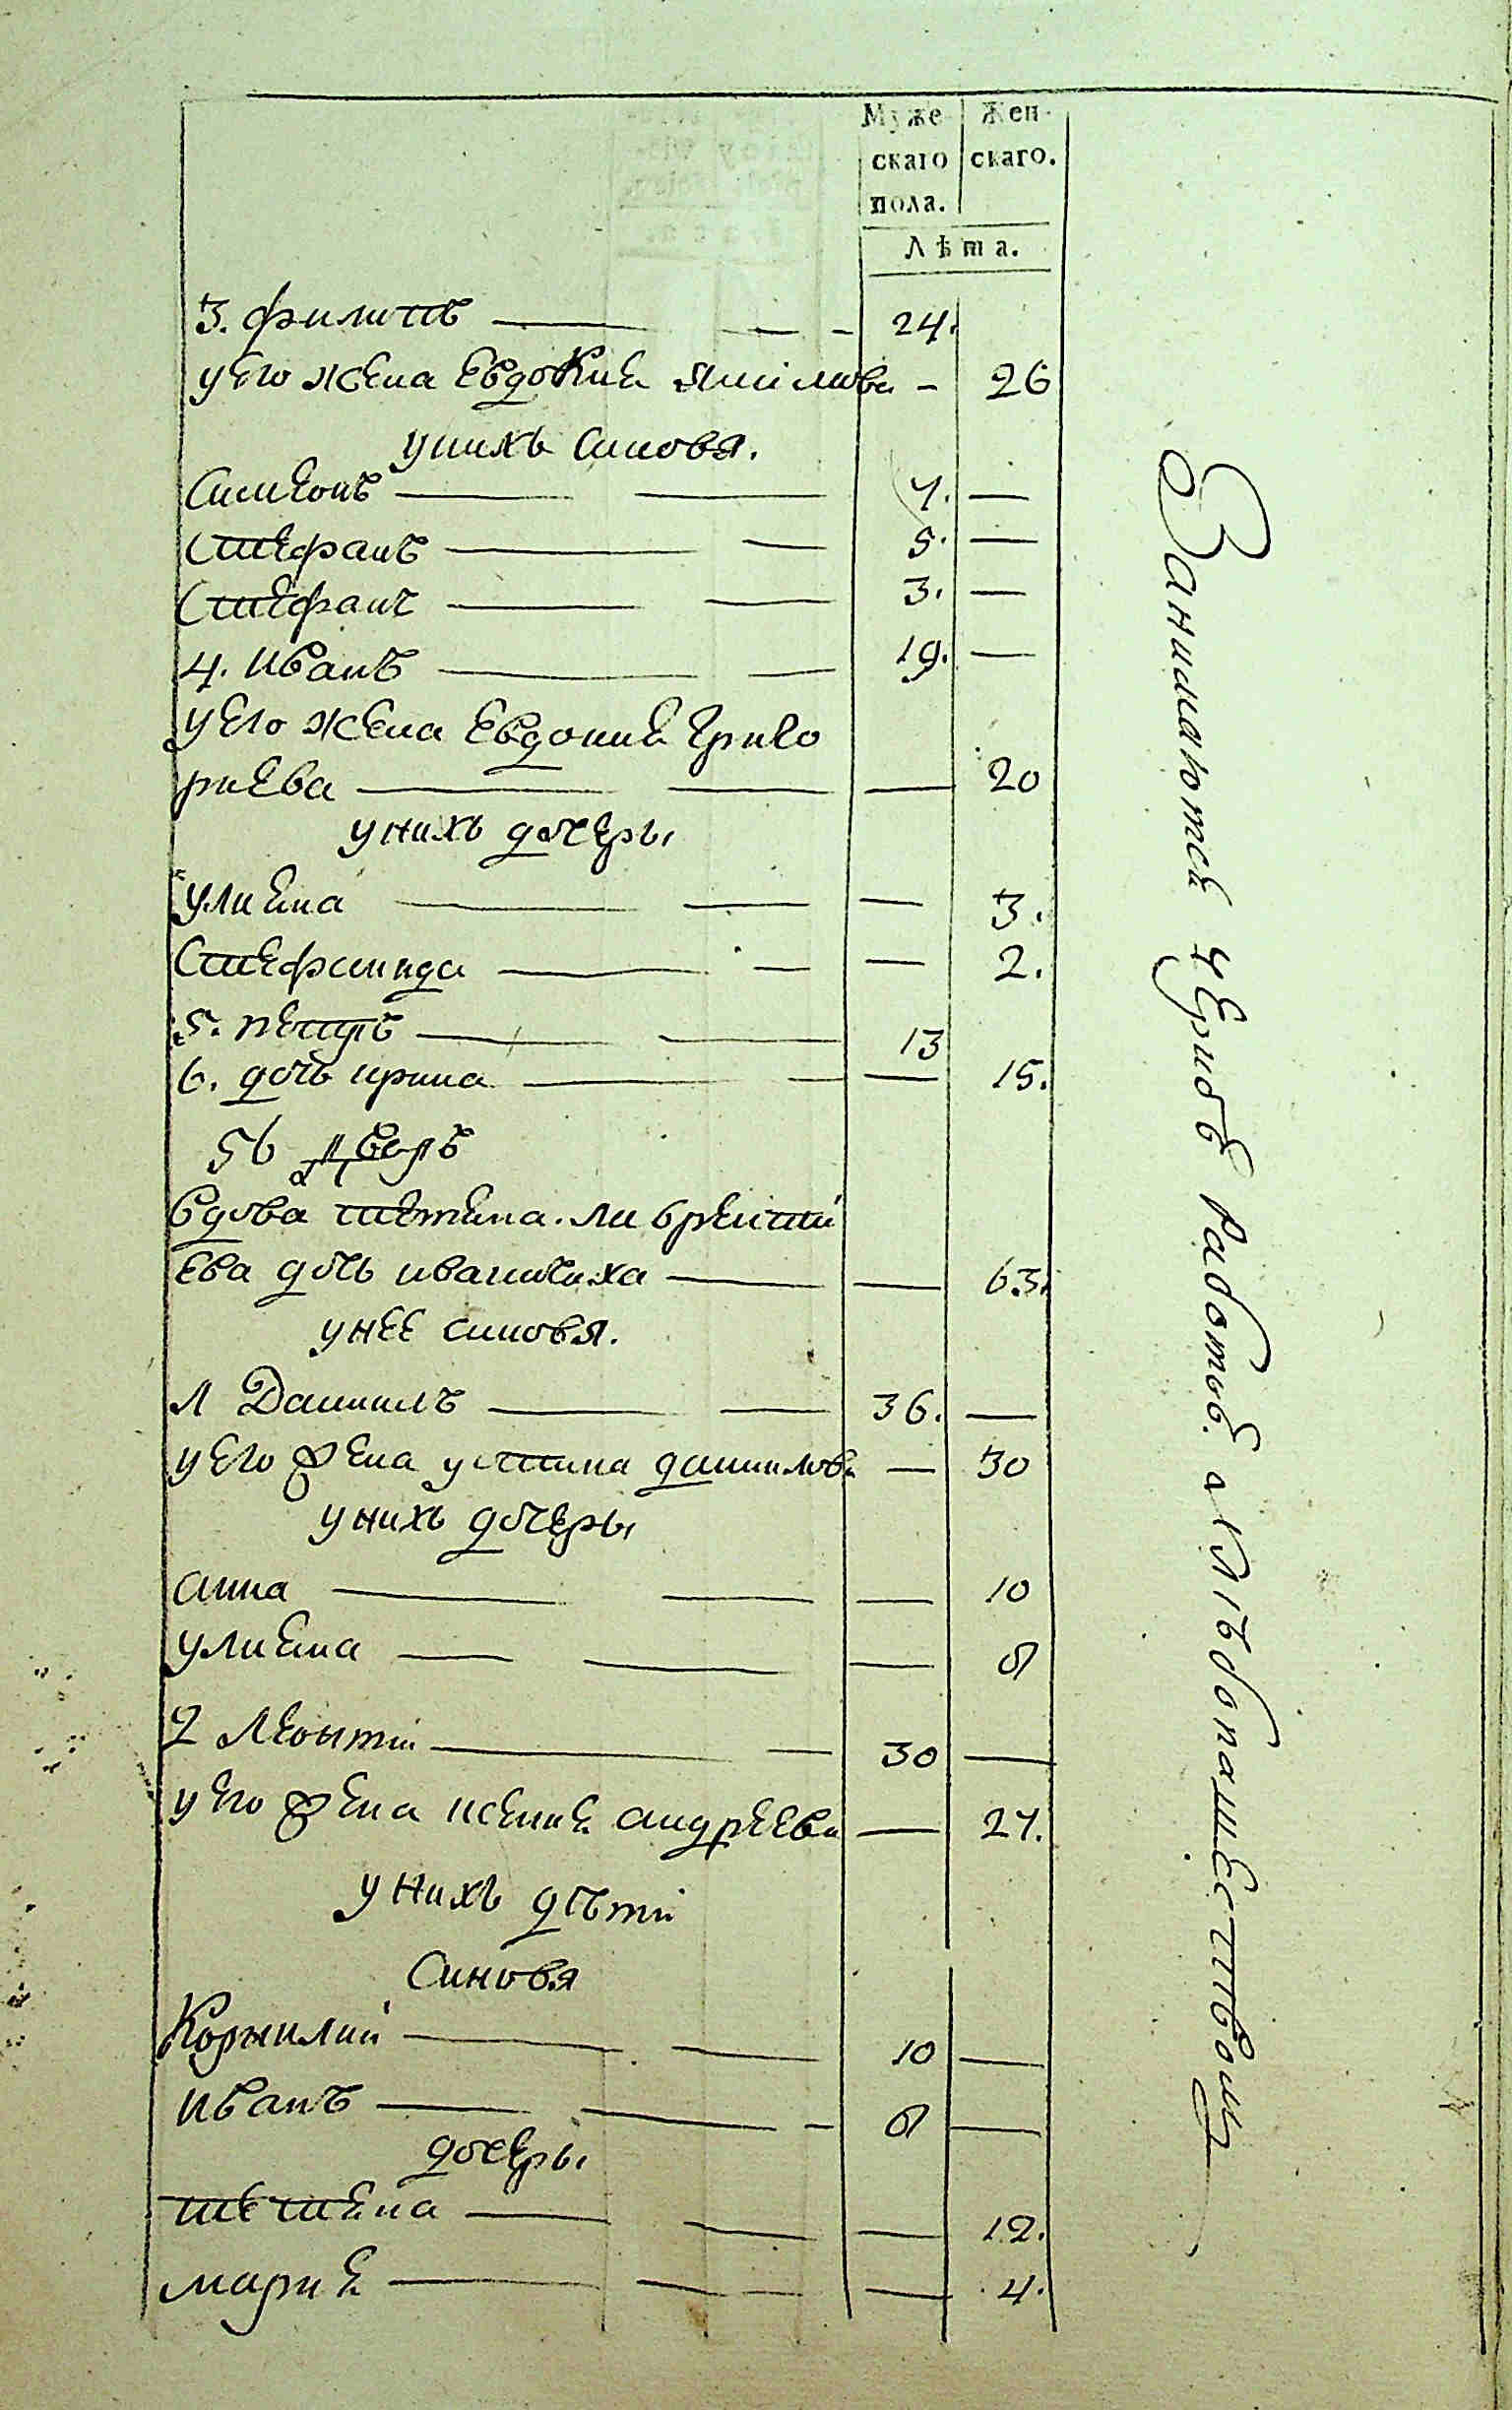 Муже
скаго
пола.
Жен-
скаго.
Лѣта.
3. филипъ 24.
у его жена Евдокия 26
у нихъ синовя.
Симионъ 7. —
Стефанъ 5. —
Стефанъ 3. —
4. иванъ 19. —
у его жена Евдокия Григо
риева — 20
у нихъ дочеры
улияна — 3.
Стефанида — 2.
5. петръ 13
6. дочь ирина — 15.
56 дворъ
Вдова тетяна.
Ева дочь — 63.
у нее синовя.
1 Даниилъ 36. —
у его жена устина данилова — 30
у нихъ дочеры
анна — 10
улияна — 8
2 Леонтій 30 —
у его жена ксения андреева — 27.
у нихъ дѣти
Синовя
Корнилий 10 —
иванъ 8 —
дочеры
тетяна — 12.
мария — 4.
Занимаются работъ. хлѣбопашествомъ